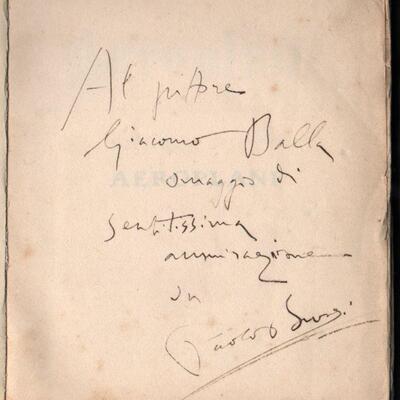 Al pittore
Giacomo Balla
AEROPLANI
omaggio di
sentitissima
ammirazione
Paolo Buzzi